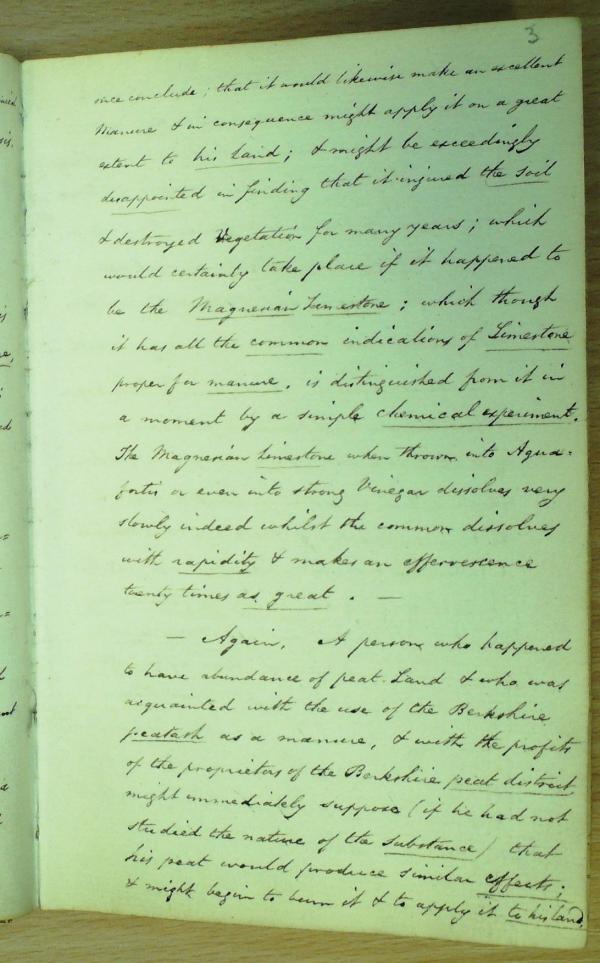 3
once conclude; that it would likewise make an excellent
Manure & in consequence might apply it on a great
extent to his Land; & might be exceedingly
disappointed in finding that it injured the soil
& destroyed Vegetation for many years; which
would certainly take place if it happened to
be the Magnesian Limestone; which though
it has all the common indications of Limestone
proper for manure, is distinguished from it in
a moment by a simple chemical experiment.
The Magnesian limestone when thrown into Aqua=
fortis or even into strong Vinegar dissolves very
slowly indeed whilst the common dissolves
with rapidity & makes an effervescence
twenty times as great. —
— Again, A person who happened
to have abundance of peat Land & who was
acquainted with the use of the Berkshire
peatash as a manure, & with the profits
of the proprietors of the Berkshire peat district
might immediately suppose (if he had not
studied the nature of the substance) that
his peat would produce similar effects;
& might begin to burn it & to apply it to his land.